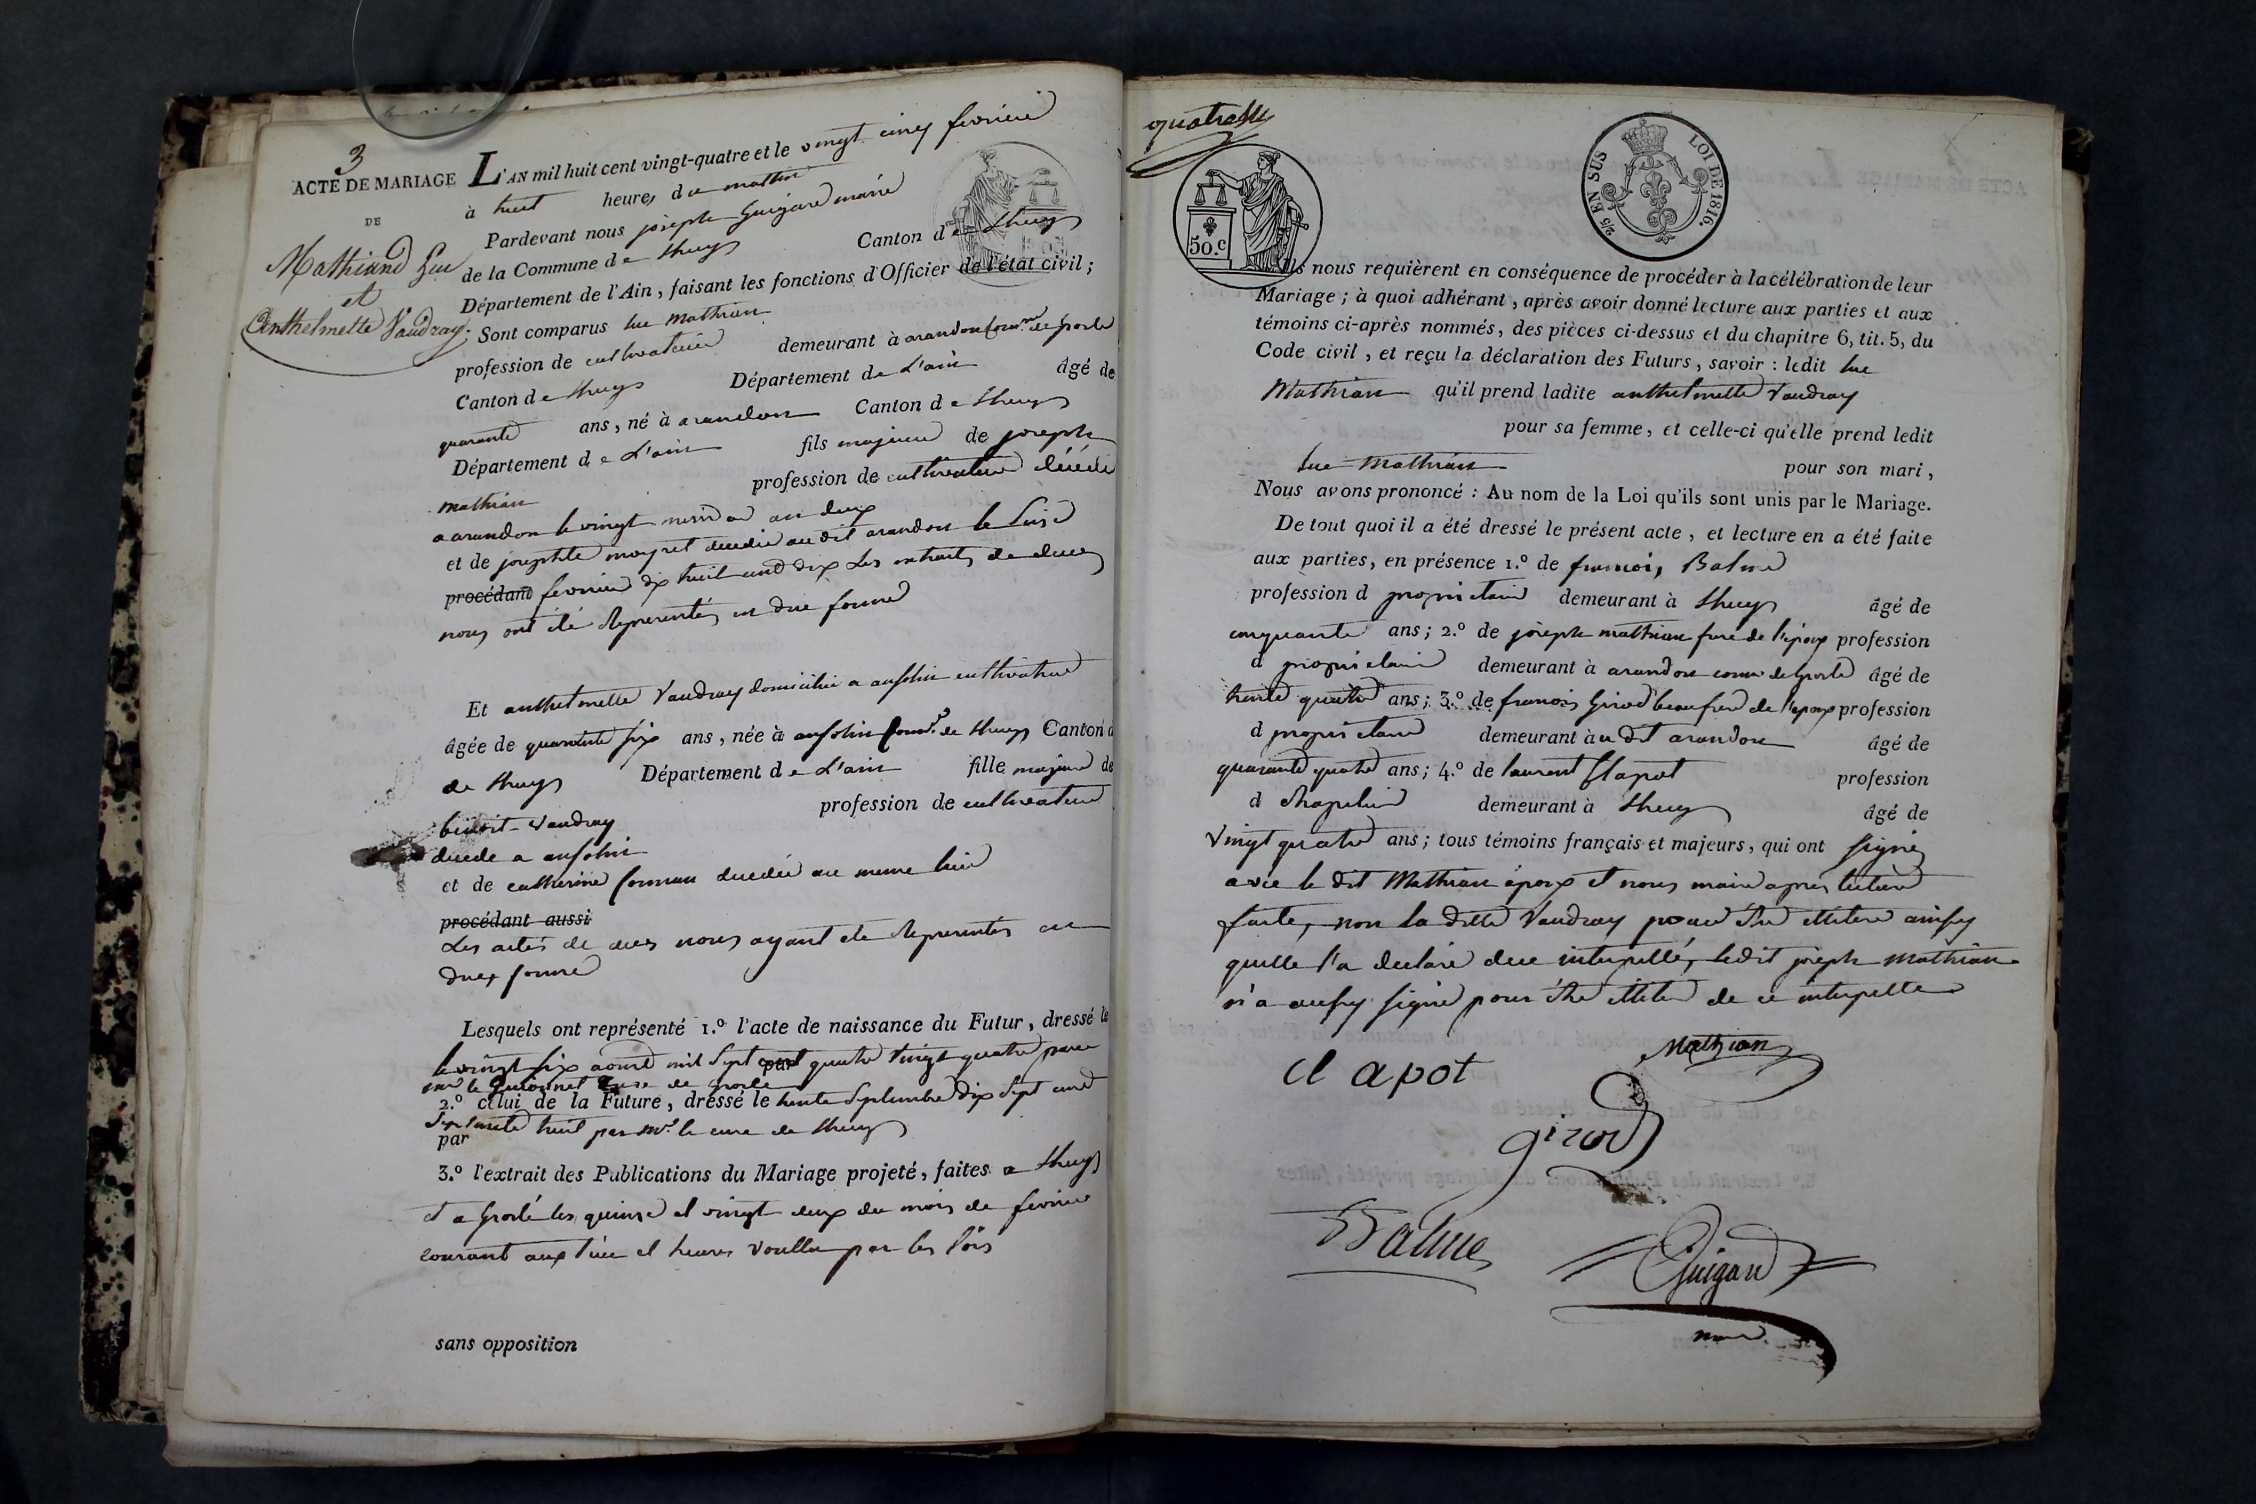 3
ACTE DE MARIAGE
DE
Mathiand Luc
et
Anthelmette Vaudray.
L'AN mil huit cent vingt-quatre et le vingt cinq fevrier
à huit heures du mattin
Pardevant nous joseph Guigard maire
de la Commune de Lhuys Canton de Lhuys
Département de l'Ain, faisant les fonctions d'Officier de l'état civil;
Sont comparus luc mathian
profession de cultivateur demeurant à arandon comne de grosle
Canton de Lhuys Département de L'ain âgé de
quarante ans, né à arandon Canton de Lhuys
Département de L'ain fils majeur de joseph
mathian profession de cultivateur décédé
a arandon le vingt an deux
et de josephte moyret decedée au dit arandon le seise
procédand fevrier dix huit cent dix Les extraits de deces
nous ont été Representés en due forme
Et anthelmette Vaudray domiciliée a ansolin cultivatrice
âgée de quarante six ans, née à ansolin comne de Lhuys Canton d
de Lhuys Département de L'ain fille majeure de
benoit Vaudray profession de cultivateur
decede a ansolin
et de catherine decedée au meme lieu
procédant aussi
Les actes de deces nous ayant ete Representés en
due forme
Lesquels ont représenté 1.º l'acte de naissance du Futur, dressé le
le vingt six aout mil sept cent quatre vingt quatre par
mr le cure de grosle
2.º celui de la Future, dressé le trente Septembre dix Sept cent
Septante huit par mr le cure de Lhuys
par
3.º l'extrait des Publications du Mariage projeté, faites a Lhuys
et a Groslé les quinse et vingt deux du mois de fevrier
courant aux lieu et heures voullu par les lois
sans opposition
quatre
50.c
2/5 EN SUS LOI DE 1816.
Ils nous requièrent en conséquence de procéder à la célébration de leur
Mariage; à quoi adhérant, après avoir donné lecture aux parties et aux
témoins ci-après nommés, des pièces ci-dessus et du chapitre 6, tit. 5, du
Code civil, et reçu la déclaration des Futurs, savoir : ledit luc
Mathian qu'il prend ladite anthelmette Vaudray
pour sa femme, et celle-ci qu'elle prend ledit
luc mathian pour son mari,
Nous avons prononcé : Au nom de la Loi qu'ils sont unis par le Mariage.
De tout quoi il a été dressé le présent acte, et lecture en a été faite
aux parties, en présence 1.º de francois Balme
profession d proprietaire demeurant à Lhuys âgé de
cinquante ans; 2.º de joseph mathian frere de l'epoux profession
d proprietaire demeurant à arandon comne de grosle âgé de
trente quatre ans; 3.º de francois Girod beaufrere de l'epoux profession
d proprietaire demeurant àu dit arandon âgé de
quarante quatre ans; 4.º de laurent Clapot profession
d chapelier demeurant à Lhuys âgé de
vingt quatre ans; tous témoins français et majeurs, qui ont signé
avec le dit Mathian époux et nous maire apres lecture
faite, non la ditte Vaudray pour etre illitere ainsy
quelle l'a declaré dece interpellé, ledit joseph mathian
n'a aussy signé pour etre illitere de ce interpelle
Mathian
Clapot
girod
Balme
Guigard
maire